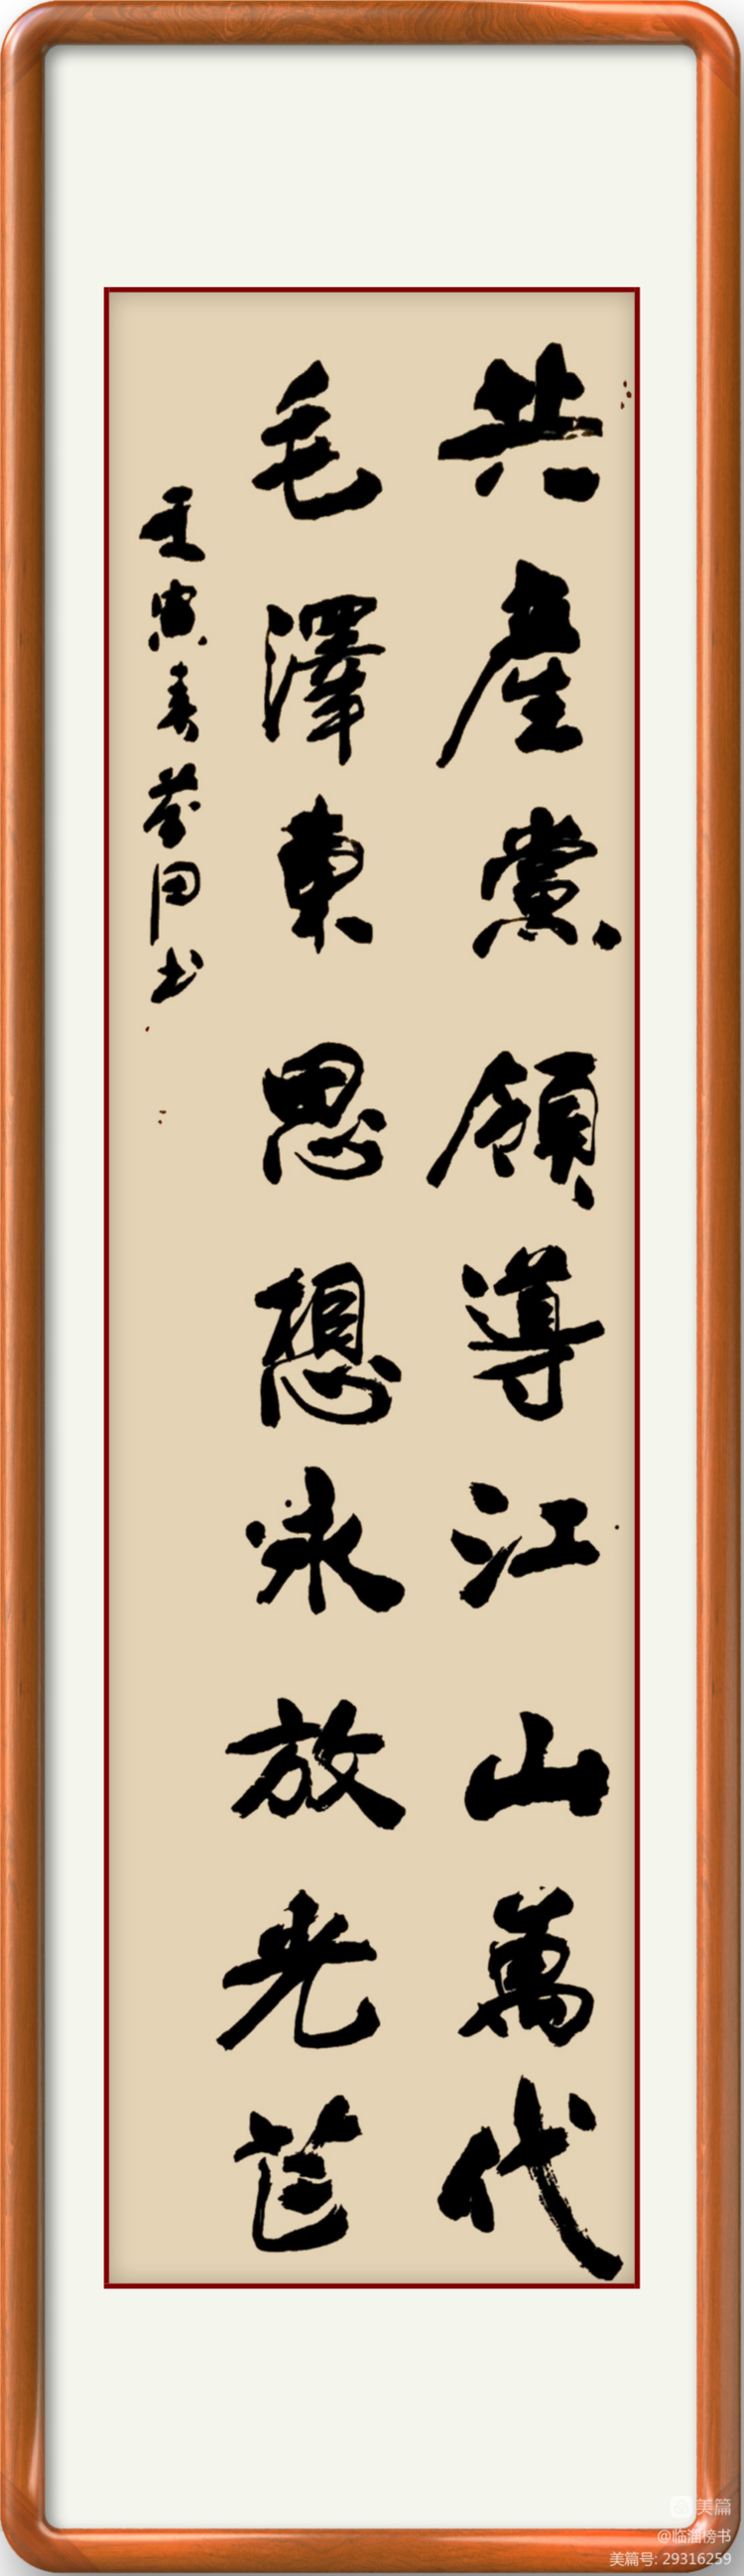 共產黨領導江山萬代
毛澤東思想永放光芒
壬寅春田书
美篇
@临淄榜书
美篇号: 29316259